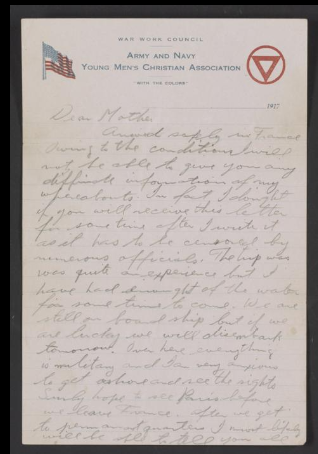 WAR WORK COUNCIL
ARMY AND NAVY
YOUNG MEN'S CHRISTIAN ASSOCIATION
"WITH THE COLORS"
1917
Dear Mother
Arrived safely in France
Owing to the conditions I will
not be able to give you any
diffinite information of my
whereabouts. In fact I dought
if you will receive this letter
for sometime after I write it
as it has to be censored by
numerous officials. The trip was
was quite an experience but I
have had enought of the water
for some time to come. We are
still on board ship but if we
are lucky we will disembark
tomorrow. Over here everything
is military and I am very anxious
to get ashore and see the sights
Surely hope to see Paris before
we leave France. After we get
to permanent quarters I most likely
will be able to tell you all